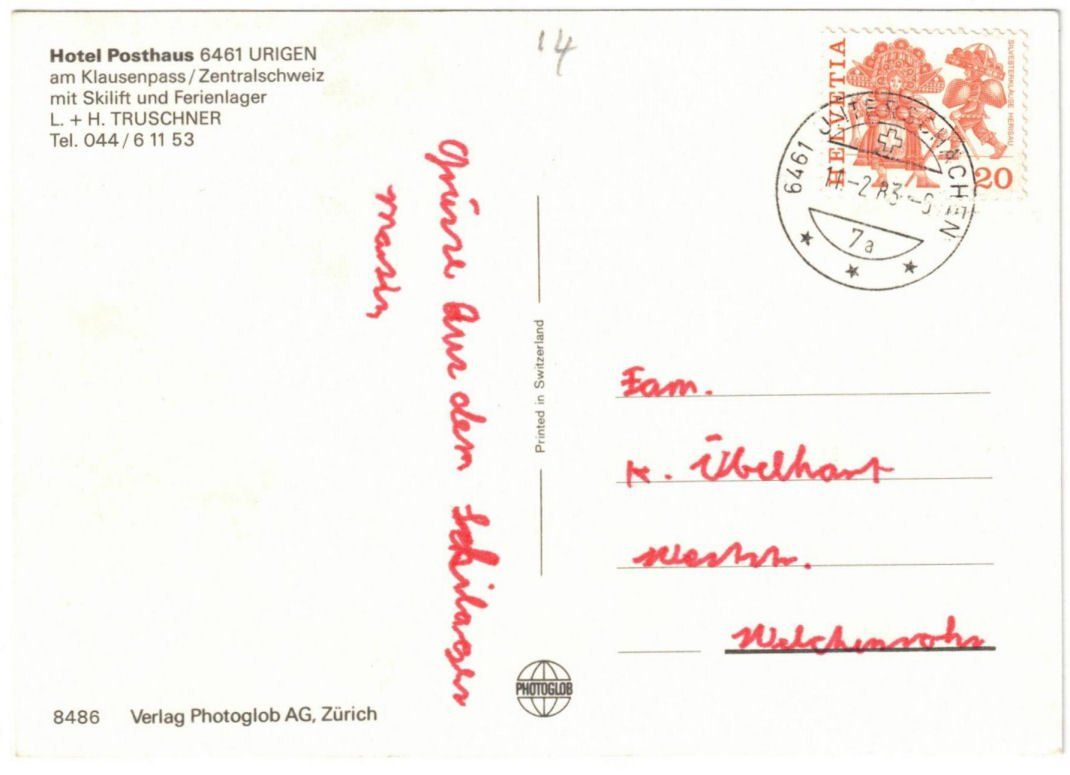 Hotel Posthaus 6461 URIGEN
am Klausenpass/Zentralschweiz
mit Skilift und Ferienlager
L. + H. TRUSCHNER
Tel. 044/6 11 53
14
HELVETIA
SILVESTERKLÄUSE HERISAU
20
6461 UNTERSCHÄCHEN
-2.83.-9
7a
Grüsse Aus dem Schilager
Martin
Printed in Switzerland
Fam.
K. Übelhart
Weststr.
Welchenrohr
PHOTOGLOB
8486 Verlag Photoglob AG, Zürich